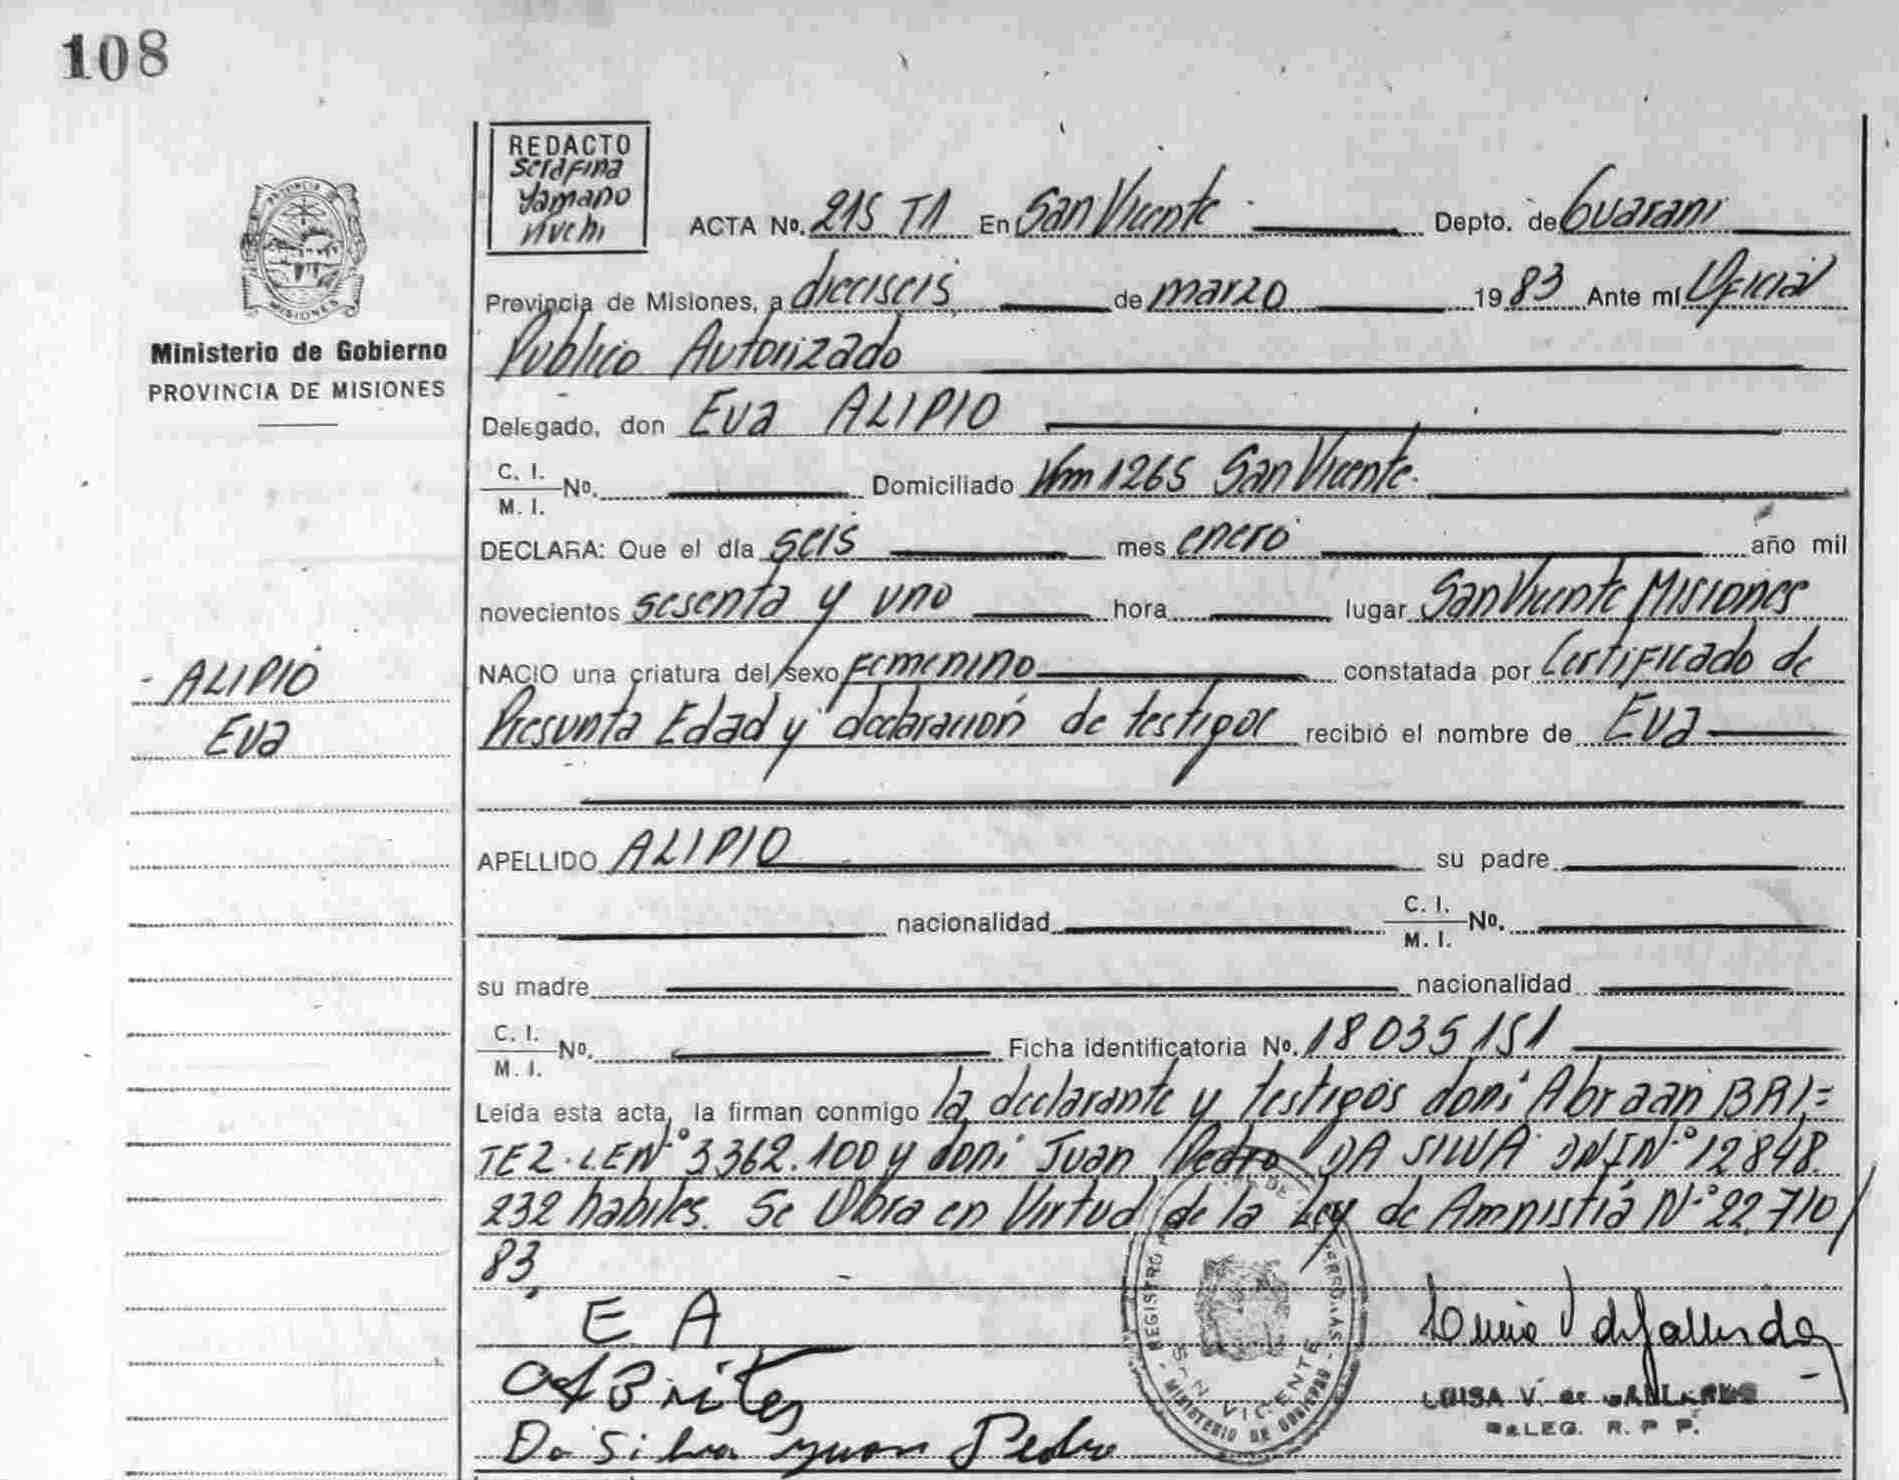 108
REDACTO
Serafina
Yamano
ACTA No. 215 T1 En San Vicente Depto. de Guaraní
Provincia de Misiones, a dieciseis de marzo 1983 Ante mí Oficial
Publico Autorizado
Ministerio de Gobierno
PROVINCIA DE MISIONES
Delegado, don Eva ALIPIO
C. I. / M. I. No. Domiciliado Km 1265 San Vicente.
DECLARA: Que el día seis mes enero año mil
novecientos sesenta y uno hora lugar San Vicente Misiones
NACIO una criatura del sexo femenino constatada por Certificado de
Presunta Edad y declaración de testigos recibió el nombre de Eva
- ALIPIO
Eva
APELLIDO ALIPIO su padre
nacionalidad C. I. / M. I. No.
su madre nacionalidad
C. I. / M. I. No. Ficha identificatoria No. 18035151
Leída esta acta, la firman conmigo la declarante y testigos don: Abraan BRI=
TEZ. L.E.Nº 3.362.100 y don: Juan Pedro DA SILVA DNI Nº 12.848.
232 habiles. Se Obra en Virtud de la Ley de Amnistia Nº 22.710/
83.
E A
Brites
Da Silva Juan Pedro
REGISTRO
SAN VICENTE
MINISTERIO DE GOBIERNO
LUISA V. de
DELEG. R. P. P.